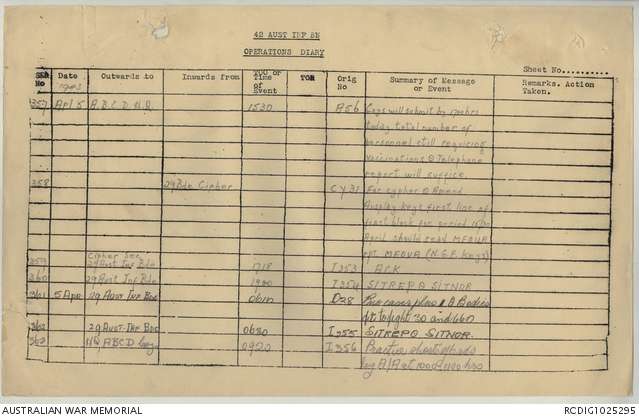 42 AUST INF BN
OPERATIONS DIARY
Sheet No..........
SER No Date Outwards to Inwards from TOO or Time of Event TOR Orig No Summary of Message or Event Remarks. Action Taken.
1943
357 Apl 5 A.B.C.D. H.Q. 1530 A56 Coys will submit by
today total number of
personnel still requiring
vaccinations @ Telephone
report will suffice.
358 29 Bde Cipher CY31 For cypher @ Amend
keys first line of
first block for period
April should read MFOUA
not MEOUA (N.G.F. keys)
Cipher Sec
359 29 Aust Inf Bde 1718 I353 ACK
360 29 Aust Inf Bde 1900 I354 SITREP @ SITNOR
361 5 Apr 29 Aust Inf Bde 0610 D28
30 and 460
362 29 Aust Inf Bde 0630 I355 SITREP @ SITNOR
363 HQ ABCD Coy 0920 I356 Practice
by A/A at 1000-1100 hrs
AUSTRALIAN WAR MEMORIAL RCDIG1025295